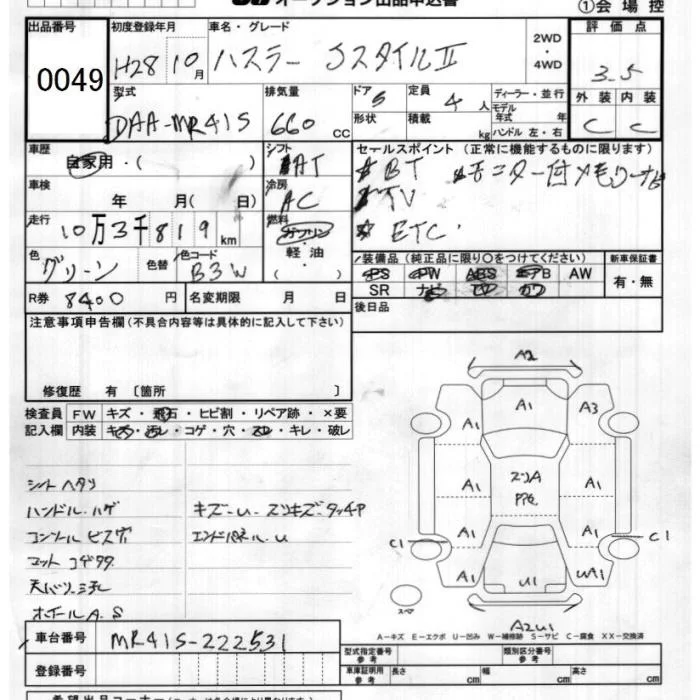 オークション出品申込書 ①会場控
出品番号 初度登録年月 車名・グレード 評価点
0049 H28 10月 ハスラー Jスタイル II 2WD・4WD 3.5
型式 排気量 ドア 5 定員 4人 ディーラー・並行 外装 内装
DAA-MR41S 660cc 形状 積載 kg モデル年式 年 ハンドル 左・右 C C
車歴 シフト セールスポイント (正常に機能するものに限ります)
自家用・( ) AT BT モニター付メモリーナビ
車検 年 月( 日) 冷房 AC TV
走行 10万3千819km 燃料 ガソリン・軽油・( ) ETC
色 グリーン 色替 色コード B3W
装備品 (純正品に限り〇をつけてください) 新車保証書
PS PW ABS エアB AW 有・無
SR ナビ
R券 8400円 名変期限 月 日 後日品
注意事項申告欄 (不具合内容等は具体的に記入して下さい)
修復歴 有 〔箇所 〕
検査員 FW キズ・飛石・ヒビ割・リペア跡・×要
記入欄 内装 キズ・汚レ・コゲ・穴・スレ・キレ・破レ
A2
A1 A1 A3
A1 スリA A1
A1 A1
C1 C1
A1 U1 WA1
スペア
A2U1
シートヘタリ
ハンドル.ハゲ キズ-U-スリキズ-タッチP
コンソールビス穴 エンドパネル.U
マットコゲ
ホイールA.S
A－キズ E－エクボ U－凹み W－補修跡 S－サビ C－腐食 XX－交換済
車台番号 MR41S-222531
型式指定番号 参考 類別区分番号 参考
登録番号 車庫証明用 参考 長さ cm 幅 cm 高さ cm
希望出品コーナー